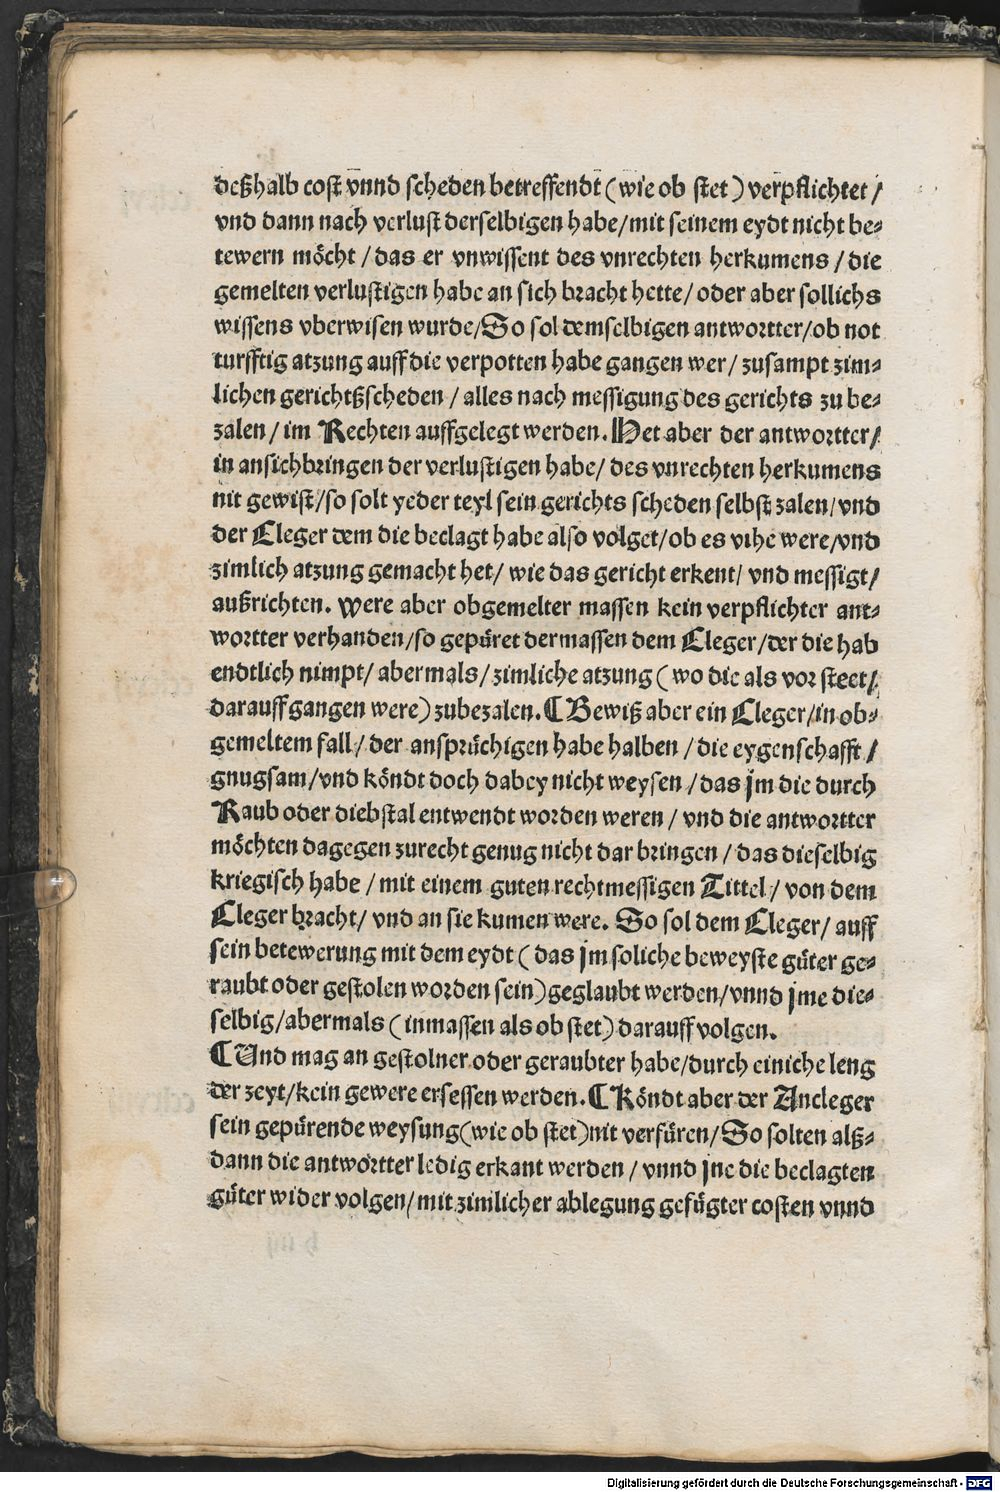 deßhalb cost vnnd scheden betreffendt (wie ob stet) verpflichtet /
vnd dann nach verlust derselbigen habe/mit seinem eydt nicht be⸗
tewern möcht / das er vnwissent des vnrechten herkumens / die
gemelten verlustigen habe an sich bracht hette/ oder aber sollichs
wissens vberwisen wurde/So sol demselbigen antwortter/ob not
turfftig atzung auff die verpotten habe gangen wer / zusampt zim⸗
lichen gerichtßscheden / alles nach messigung des gerichts zu be⸗
zalen / im Rechten auffgelegt werden. Het aber der antwortter/
in ansichbringen der verlustigen habe/ des vnrechten herkumens
nit gewist/so solt yeder teyl sein gerichts scheden selbst zalen/vnd
der Cleger dem die beclagt habe also volget/ob es vihe were/vnd
zimlich atzung gemacht het/ wie das gericht erkent/ vnd messigt/
außrichten. Were aber obgemelter massen kein verpflichter ant⸗
wortter verhanden/so gepüret dermassen dem Cleger/der die hab
endtlich nimpt/ abermals/zimliche atzung (wo die als vor steet/
darauff gangen were) zubezalen. ❡ Bewiß aber ein Cleger/in ob⸗
gemeltem fall/der ansprüchigen habe halben / die eygenschafft /
gnugsam/vnd köndt doch dabey nicht weysen / das jm die durch
Raub oder diebstal entwendt worden weren / vnd die antwortter
möchten dagegen zurecht genug nicht dar bringen / das dieselbig
kriegisch habe / mit einem guten rechtmessigen Tittel / von dem
Cleger bracht/ vnd an sie kumen were. So sol dem Cleger/ auff
sein betewerung mit dem eydt (das jm soliche beweyste güter ge⸗
raubt oder gestolen worden sein) geglaubt werden/vnnd jme die⸗
selbig/abermals (inmassen als ob stet) darauff volgen.
❡ Und mag an gestolner oder geraubter habe/durch einiche leng
der zeyt/kein gewere ersessen werden. ❡ Köndt aber der Ancleger
sein gepürende weysung(wie ob stet)nit verfüren/So solten alß⸗
dann die antwortter ledig erkant werden / vnnd jne die beclagten
güter wider volgen/mit zimlicher ablegung gefügter costen vnnd
Digitalisierung gefördert durch die Deutsche Forschungsgemeinschaft - DFG